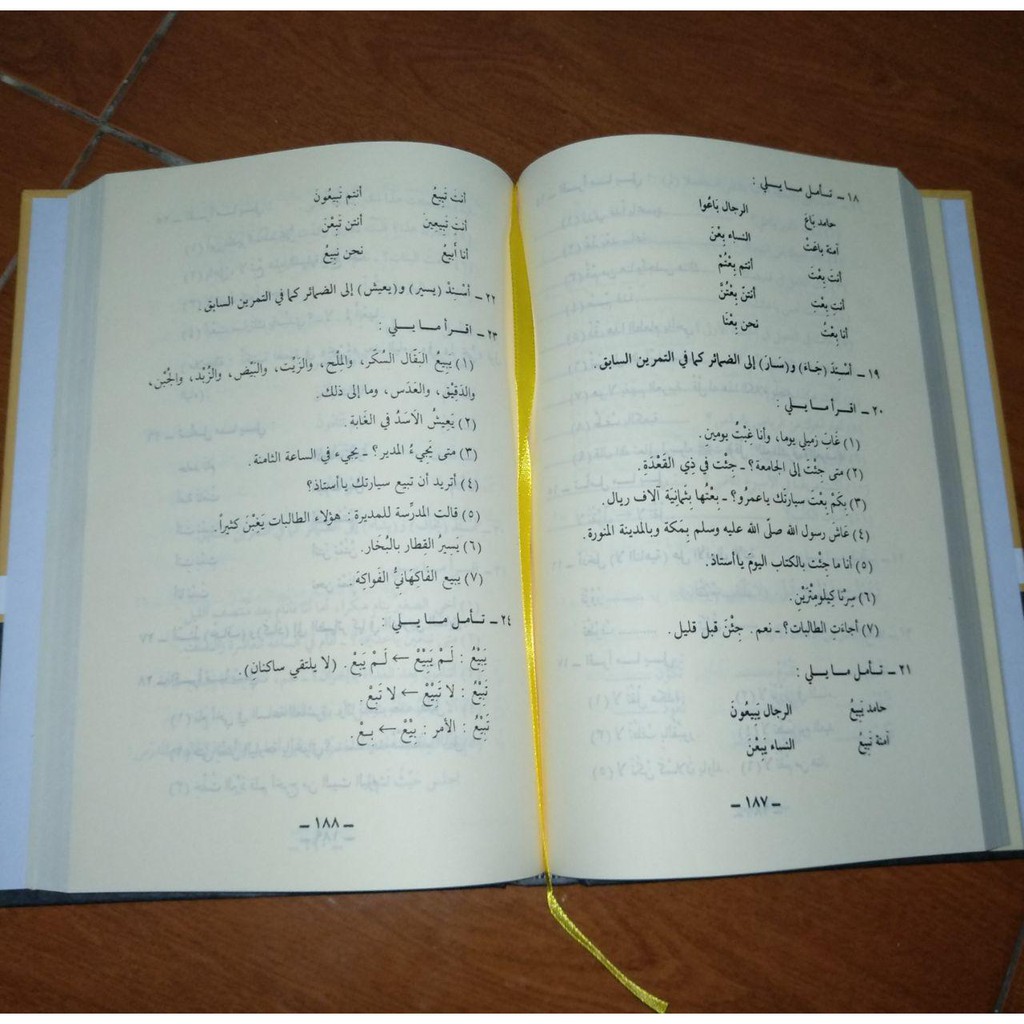 ١٨ ـ تأمل ما يلي :
حامد بَاعَ الرجال بَاعُوا
آمنة بَاعَتْ النساء بِعْنَ
أنتَ بِعْتَ أنتم بِعْتُمْ
أنتِ بِعْتِ أنتنّ بِعْتُنَّ
أنا بِعْتُ نحن بِعْنَا
١٩ ـ أَسْنِدْ (جَاءَ) و (سَارَ) إلى الضمائر كما في التمرين السابق .
٢٠ ـ اقرأ ما يلي :
(١) غَابَ زميلي يوما، وأنا غِبْتُ يومين.
(٢) متى جِئْتَ إلى الجامعة؟ ـ جِئْت في ذِي القَعْدَةِ.
(٣) بِكَمْ بِعْتَ سيارتَك ياعمرُو؟ ـ بِعْتُها بِثمانِيَة آلاف ريال.
(٤) عَاشَ رسول الله صلّى الله عليه وسلم بِمَكة وبالمدينة المنورة.
(٥) أنا ما جِئْت بالكتاب اليومَ ياأستاذ.
(٦) سِرْنَا كِيلومِتْرَيْنِ.
(٧) أجاءَتِ الطالبات؟ ـ نعم. جِئْنَ قبل قليل.
٢١ ـ تأمل ما يلي :
حامد يَبِيعُ الرجال يَبِيعُونَ
آمنة تَبِيعُ النساء يَبِعْنَ
ـ ١٨٧ ـ
أنتَ تَبِيعُ أنتم تَبِيعُونَ
أنتِ تَبِيعِينَ أنتن تَبِعْنَ
أنا أَبِيعُ نحن نَبِيعُ
٢٢ ـ أَسْنِدْ (يسير) و(يعيش) إلى الضمائر كما في التمرين السابق .
٢٣ ـ اقرأ ما يلي :
(١) يَبِيعُ البَقَّال السُكَّر، والمِلْح، والزَيْت، والبَيْض، والزُبْد، والجُبْن،
والدَقِيْق، والعَدَس، وما إلى ذلك.
(٢) يَعِيشُ الأَسَدُ في الغَابة.
(٣) متى يَجِيءُ المدير؟ ـ يجيء في الساعة الثامنة.
(٤) أتريد أن تبيع سيارتك ياأستاذ؟
(٥) قالت المدرِّسة للمديرة : هؤلاء الطالبات يَغِبْنَ كثيراً.
(٦) يَسِيرُ القِطار بالبُخَار.
(٧) يبيع الفَاكِهَانِيُّ الفَواكِهَ.
٢٤ ـ تأمل ما يلي :
يَبِيْعُ : لَـمْ يَبِيْعْ ← لَـمْ يَبِعْ . (لا يلتقي ساكنان).
تَبِيْعُ : لا تَبِيْعْ ← لا تَبِعْ
تَبِيْعُ : الأمر : بِيْعْ ← بِـعْ.
ـ ١٨٨ ـ